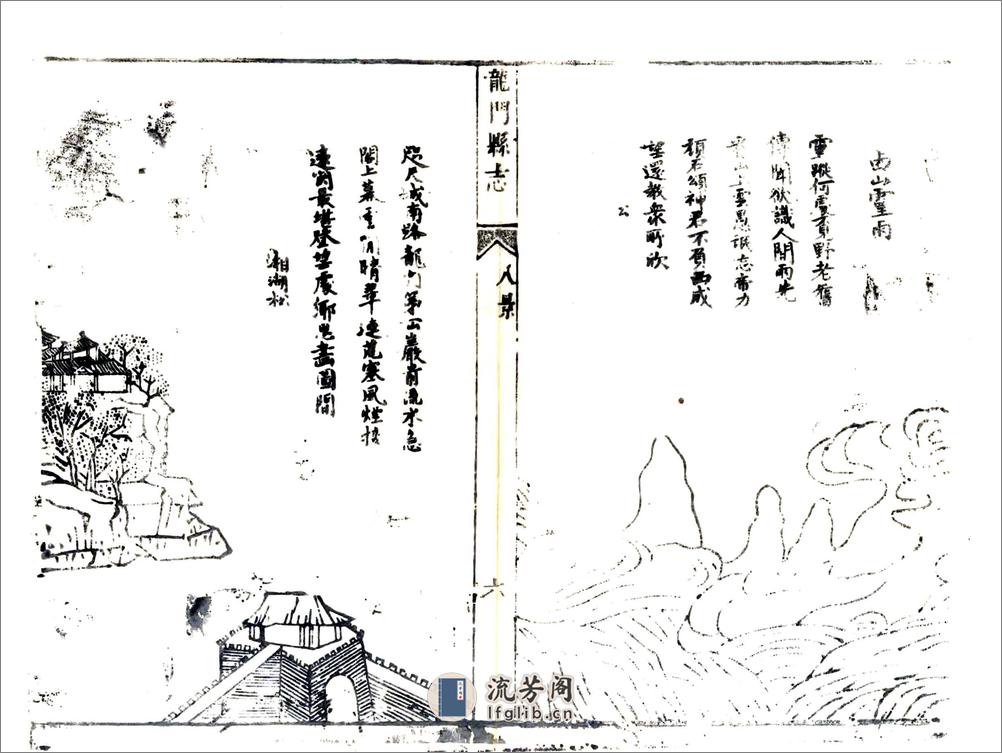 西山靈雨
靈蹤何處覓野老舊
傳聞欲識人間雨先
山上雲愚氓忘帝力
頌神君不負西成
望還教衆所欣
龍門縣志
八景
六
咫尺城南路龍門第一山巖前流水急
閣上暮雲閒晴翠連荒塞風煙接
遠關最堪登望處畫圖間
湘湖松
流芳阁
lfglib.cn